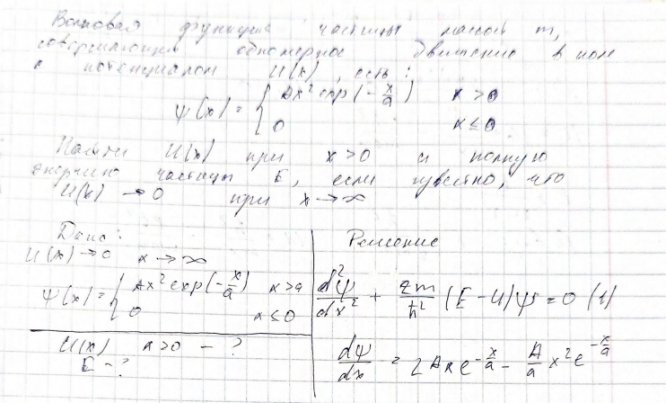 Волновая функция частицы массой m,
совершающей одномерное движение в поле
с потенциалом U(x), есть:
ψ(x) = { Ax² exp(-x/a) x > 0
0 x ≤ 0
Найти U(x) при x > 0 и полную
энергию частицы E, если известно, что
U(x) → 0 при x → ∞
Дано:
U(x) → 0 x → ∞
ψ(x) = { Ax² exp(-x/a) x >
0 x ≤ 0
U(x) x > 0 - ?
E - ?
Решение
d²ψ/dx² + 2m/ħ² (E - U)ψ = 0 (1)
dψ/dx = 2Axe^(-x/a) - A/a x² e^(-x/a)